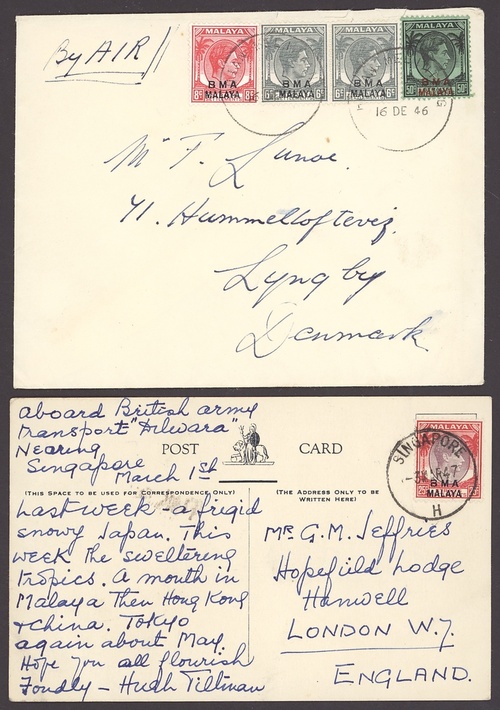 By AIR
MALAYA MALAYA MALAYA MALAYA
BMA BMA BMA BMA
8c 8c 6c 6c 6c 50c
MALAYA MALAYA MALAYA MALAYA
16 DE 46
Mr T. Lunoe.
41. Hummeltoftevej.
Lyngby
Denmark
aboard British army
transport "Dilwara"
Nearing
Singapore
March 1st
POST CARD
MALAYA
BMA
MALAYA
SINGAPORE
H
(THIS SPACE TO BE USED FOR CORRESPONDENCE ONLY)
(THE ADDRESS ONLY TO BE
WRITTEN HERE)
Last week - a frigid
snowy Japan. This
week the sweltering
tropics. A month in
Malaya then Hong Kong
+ China. Tokyo
again about May.
Hope you all flourish
Fondly - Hugh Tillman
MR. G. M. Jeffries
Hopefield Lodge
Hanwell
LONDON W.7.
ENGLAND.